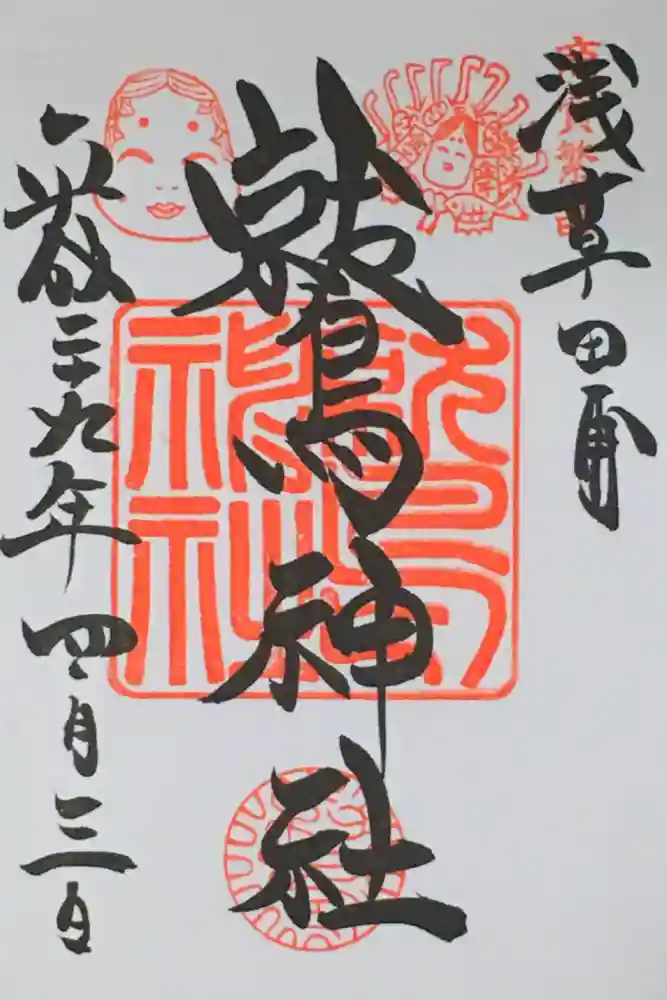 浅草田甫
鷲神社
平成二九年四月三日
鷲神社